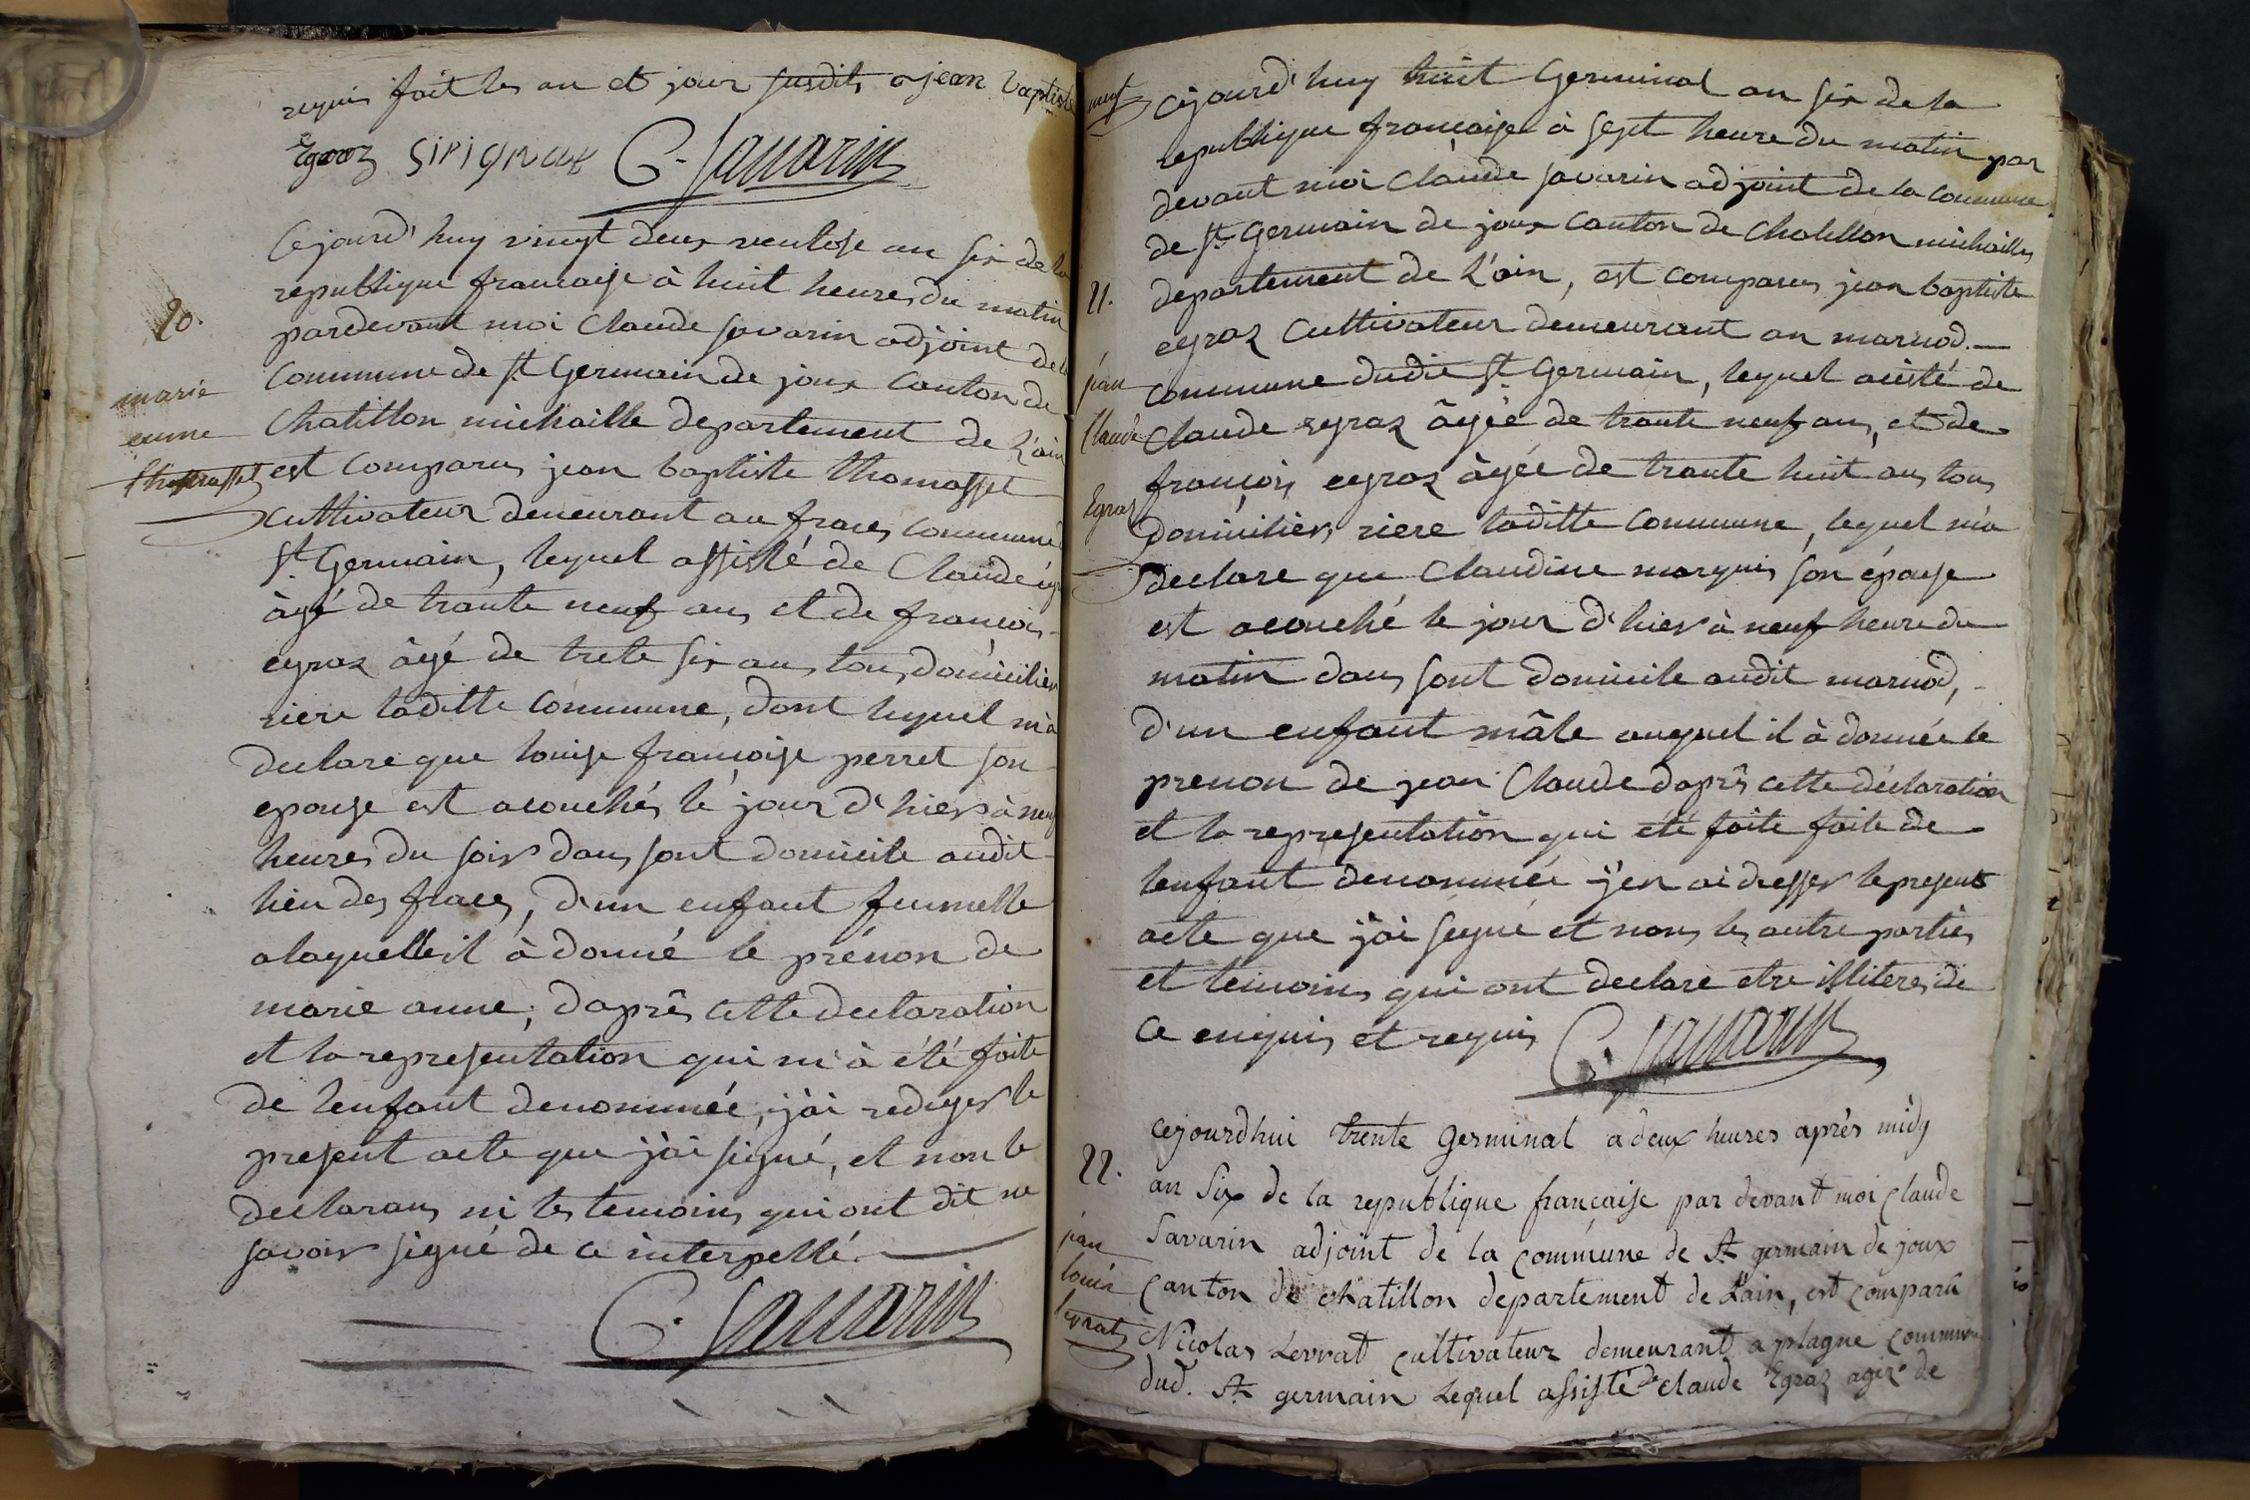 requis fait les an et jour susdits jean baptiste
Egraz sirignat C. Savarin
Cejourd'huy vingt deux ventose an six de la
republique francaise à huit heures du matin
20. pardevant moi Claude savarin adjoint de la
marie Commune de st Germain de joux Canton de
anne Chatillon michaille departement de L'ain
thomasset est comparus jean baptiste thomasset
cultivateur demeurant au fraces commune
st Germain, lequel assisté de Claude
âgé de trante neuf ans et de francois
egraz âgé de trete six ans tous domicilies
riere laditte commune, dont lequel m'a
declare que louise francoise perret son
epouse est acouchés le jour d'hier à neuf
heures du soir dans sont domicile audit
lieu des fraces, d'un enfant fummelle
a laquelle il à donné le prénon de
marie anne, daprês cette declaration
et la representation qui m'à été faite
de lenfant denommée, j'ai rediger le
present acte que j'ai signé, et non le
declarans ni les temoins qui ont dit ne
savoir signé de ce interpellé.
C. Savarin
Cejourd'huy huit Germinal an six de la
republique francaise à sept heure du matin par
devant moi Claude savarin adjoint de la commune
de st Germain de joux Canton de Chatillon michaille
21. departement de L'ain, est comparus jean baptiste
egraz Cultivateur demeurant an marnod.
jean commune dudit st Germain, lequel acisté de
Claude Claude egraz âgée de trante neuf ans, et de
françois egraz âgée de trante huit ans tous
Egraz domicilies riere laditte commune, lequel m'a
declare que Claudine marquis son épouse
est acouché le jour d'hier à neuf heure du
matin dans sont domicile audit marnod,
d'un enfant mâle auquel il à donnée le
prenon de jean Claude daprês cette déclaration
et la representation qui été faite faite de
lenfant denommée j'en ai dresser le present
acte que j'ai signé et nons les autre parties
et temoins qui ont declare etre illiteres de
ce enquis et requis C. Savarin
cejourd'hui trente germinal a deux heures après midy
22. an Six de la republique française par devant moi Claude
jean Savarin adjoint de la commune de St germain de joux
louis Canton de chatillon departement de Lain, est comparu
levrat Nicolas Levrat cultivateur demeurant a plagne commune
dud. St germain Lequel assisté de claude Egraz agée de